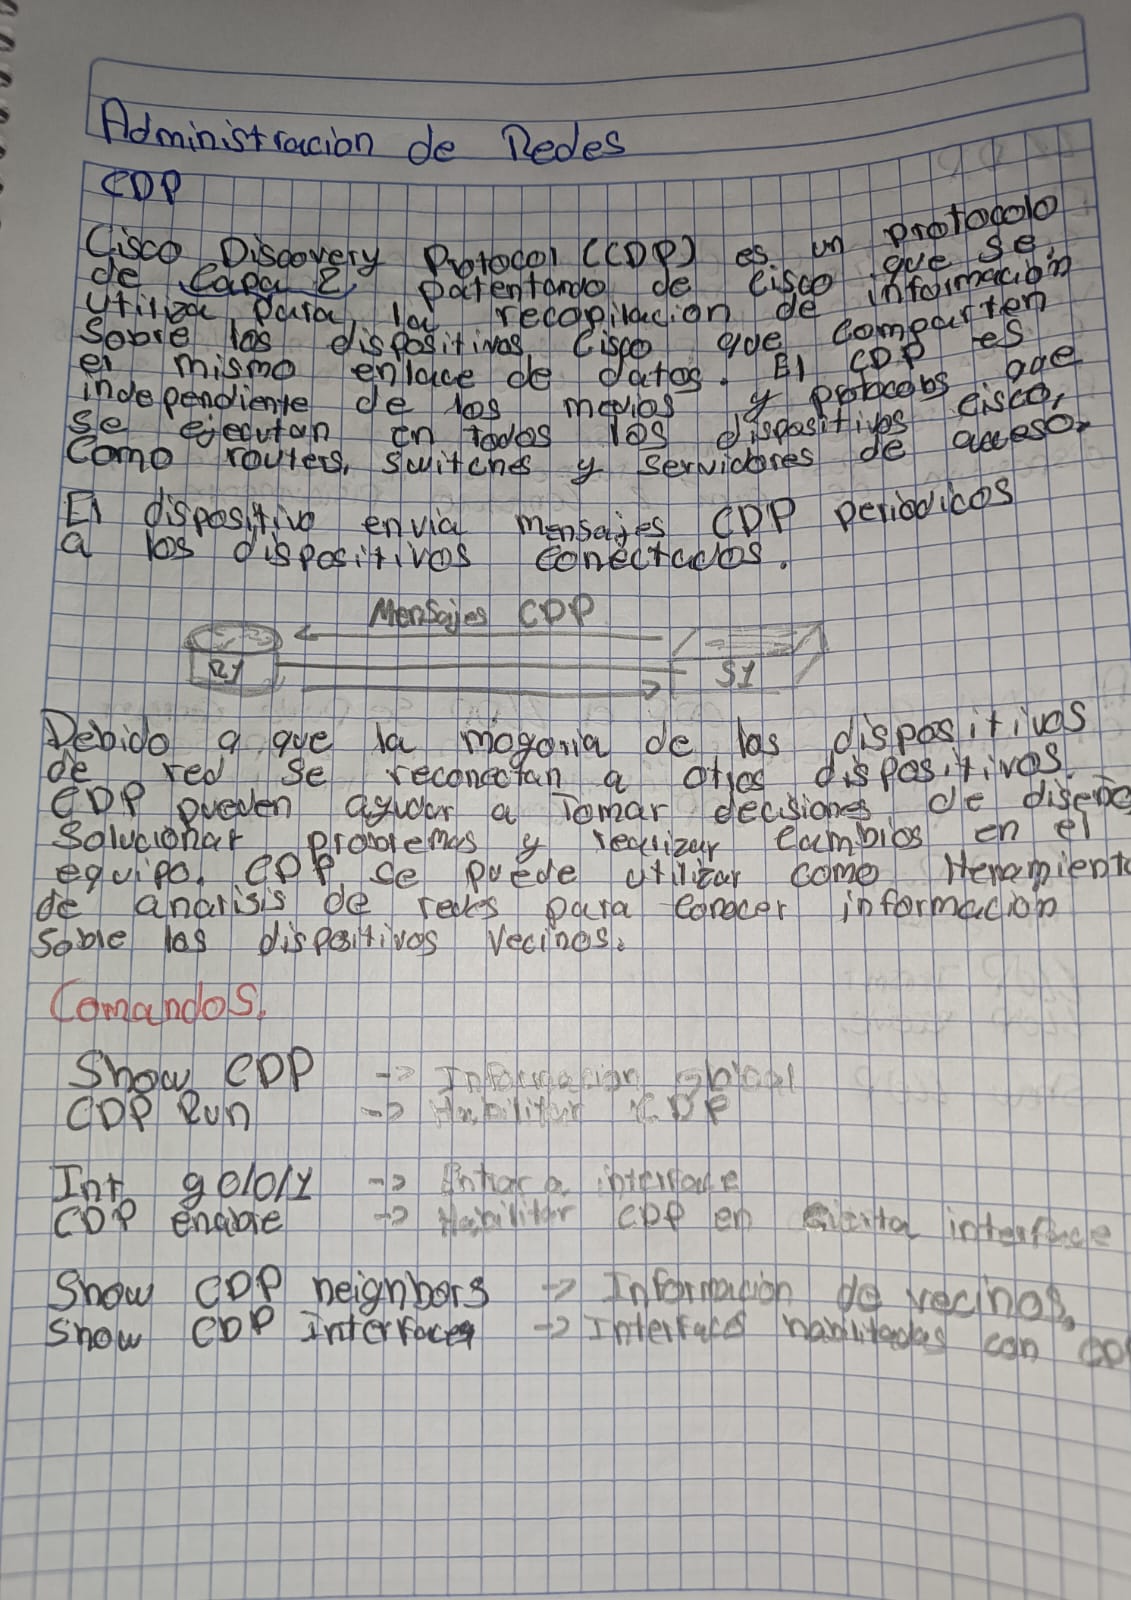 Administracion de Redes
CDP
Cisco Discovery Protocol (CDP) es un protocolo
de Capa 2 patentando de cisco que se
utiliza para la recopilacion de información
sobre los dispositivos Cisco que comparten
el mismo enlace de datos. El CDP es
independiente de los medios y protocolos que
se ejecutan en todos los dispositivos cisco,
Como routers, switches y servidores de acceso.
El dispositivo envia mensajes CDP periodicos
a los dispositivos conectados.
Mensajes CDP
R1 S1
Debido a que la mayoria de los dispositivos
de red se reconectan a otros dispositivos.
CDP pueden ayudar a Tomar decisiones de diseño
Solucionar problemas y realizar Cambios en el
equipo. CDP se puede utilizar como Heramienta
de analisis de redes para conocer informacion
Sobre los dispositivos Vecinos.
Comandos.
Show CDP -> Informacion global
CDP Run -> Habilitar CDP
Int g0/0/1 -> Entrar a interface
CDP enable -> Habilitar CDP en cierta interface
Show CDP neighbors -> Información de vecinos.
Show CDP Interface -> Interfaces habilitadas con CDP